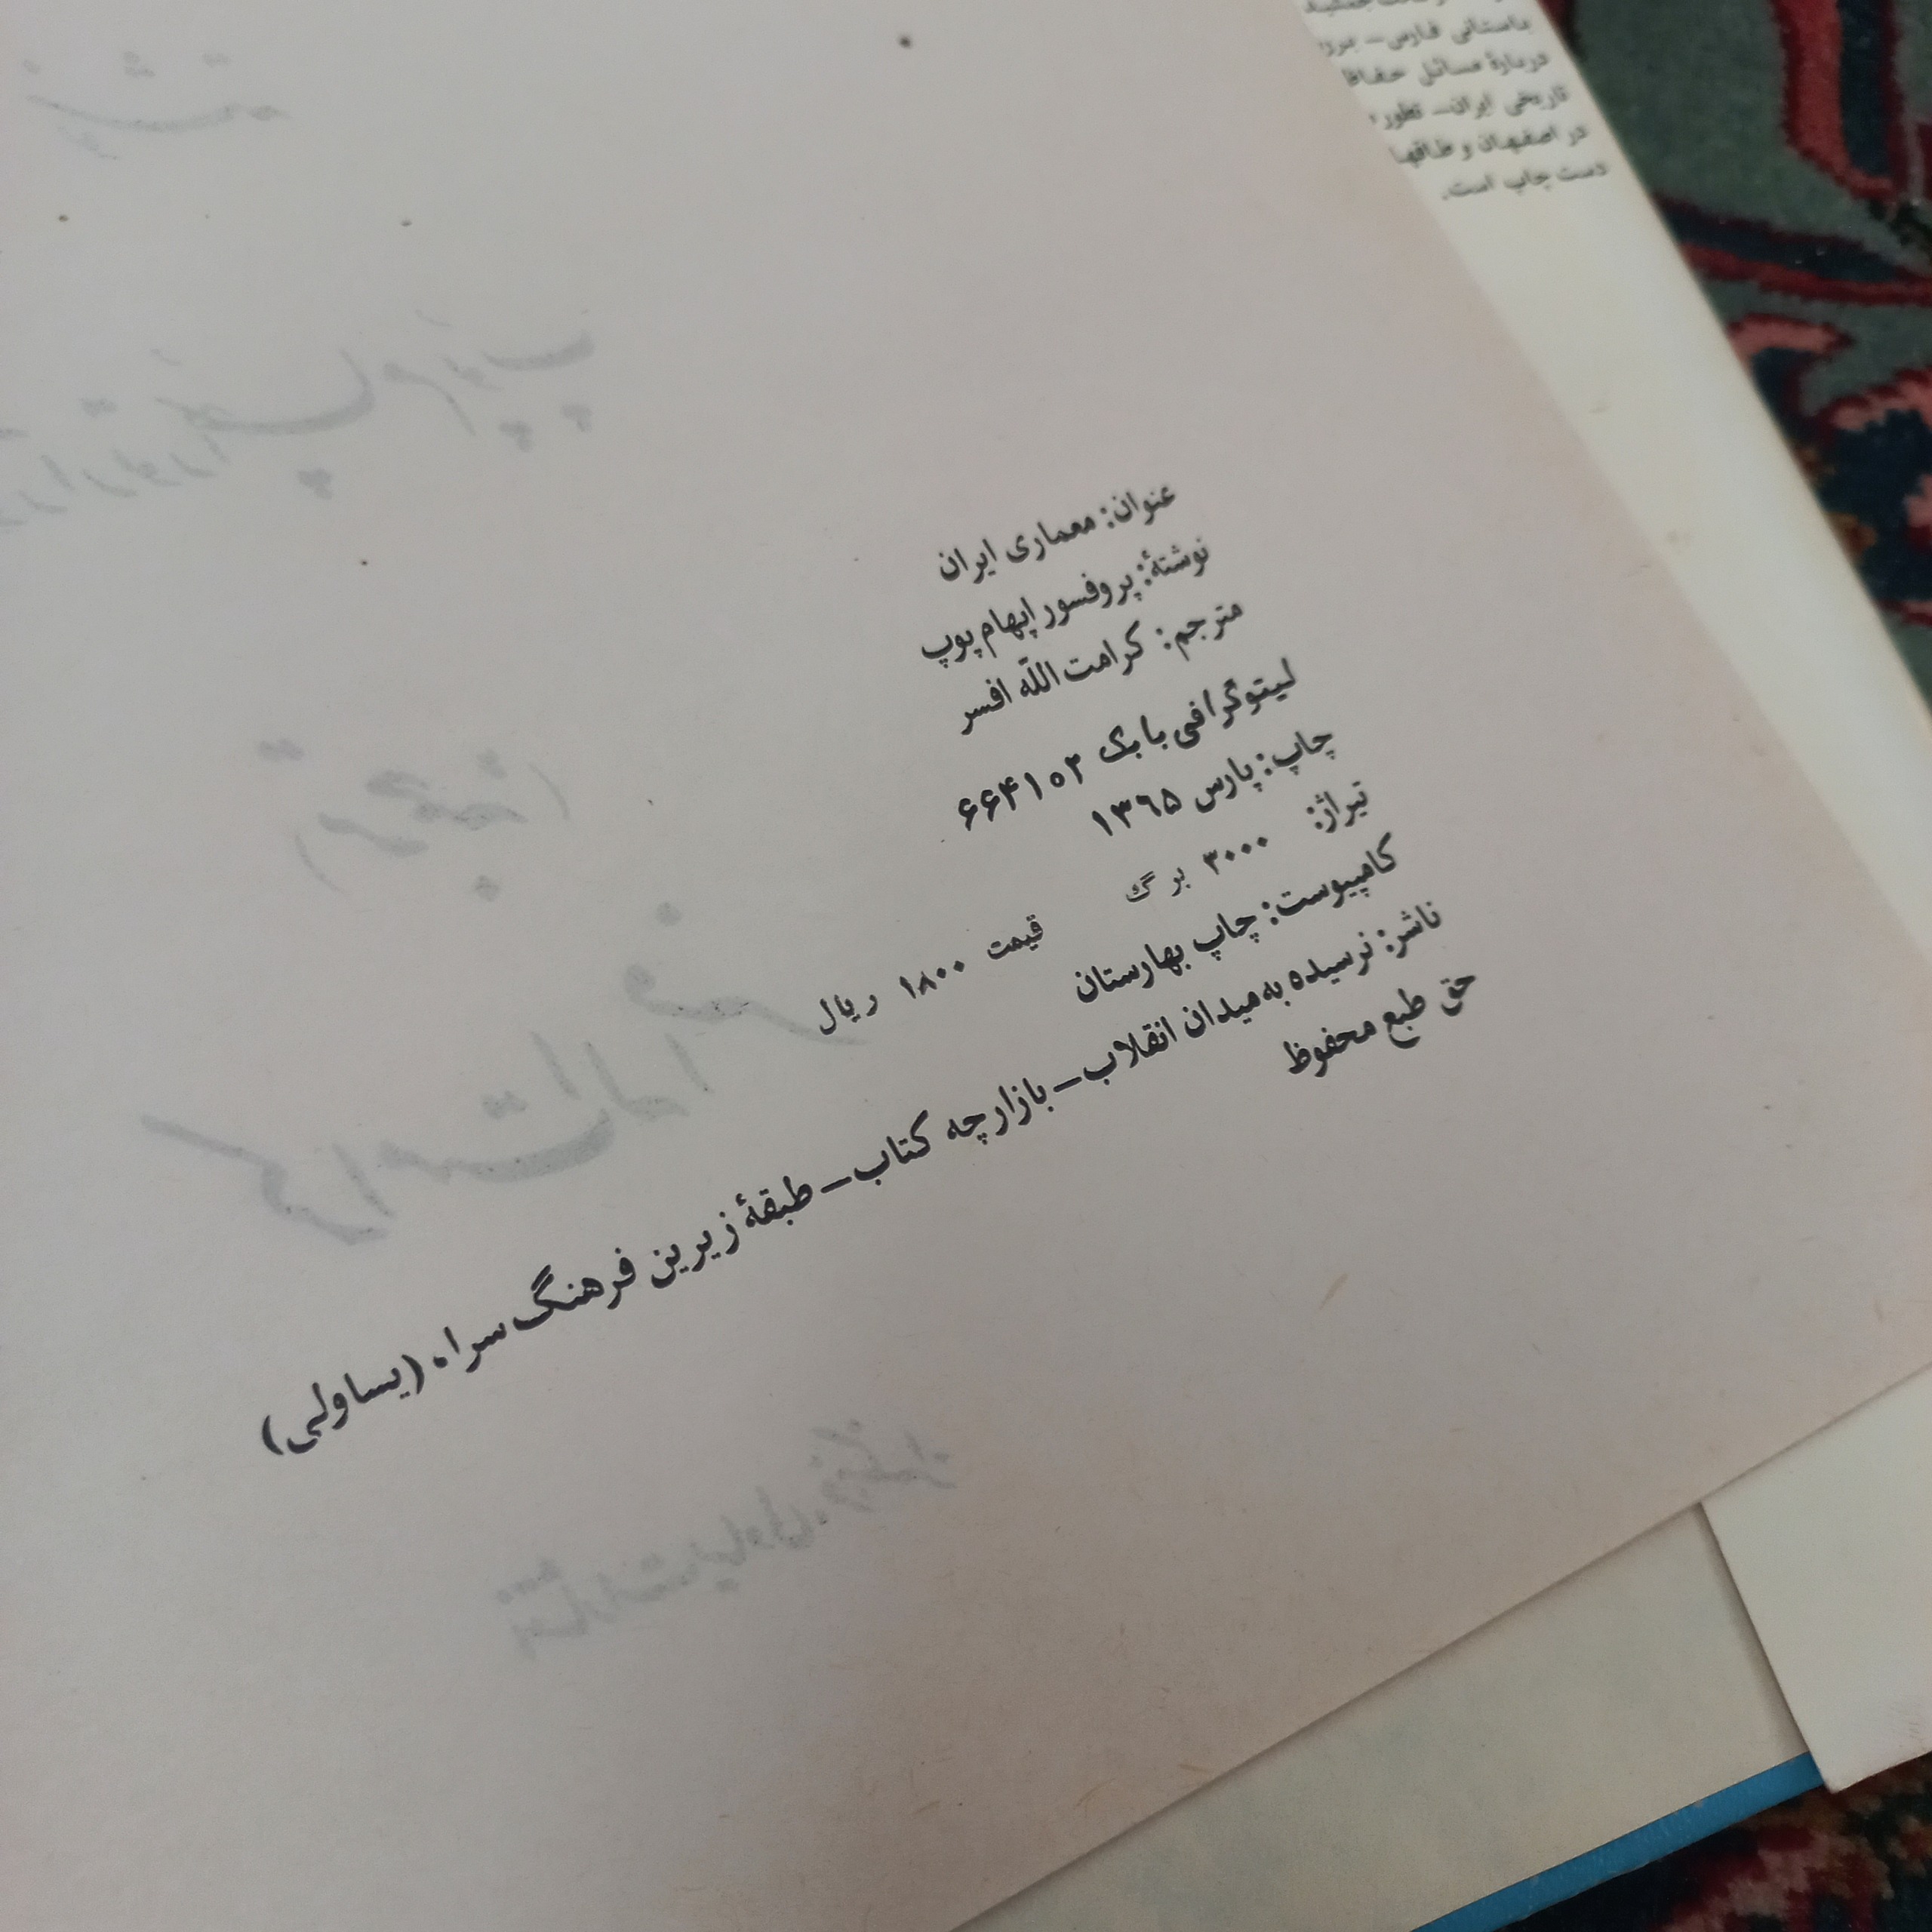 باستانی فارس–
دربارهٔ مسائل
تاریخی ایران–
در اصفهان و طاقها
دست چاپ است.
عنوان: معماری ایران
نوشتهٔ: پروفسور اپهام پوپ
مترجم: کرامت اللّه افسر
لیتوگرافی بابک ۶۶۴۱۰۲
چاپ: پارس ۱۳۶۵
تیراژ: ۳۰۰۰ برگ قیمت ۱۸۰۰ ریال
کامپیوست: چاپ بهارستان
ناشر: نرسیده به میدان انقلاب – بازارچه کتاب – طبقهٔ زیرین فرهنگ سراه (یساولی)
حق طبع محفوظ